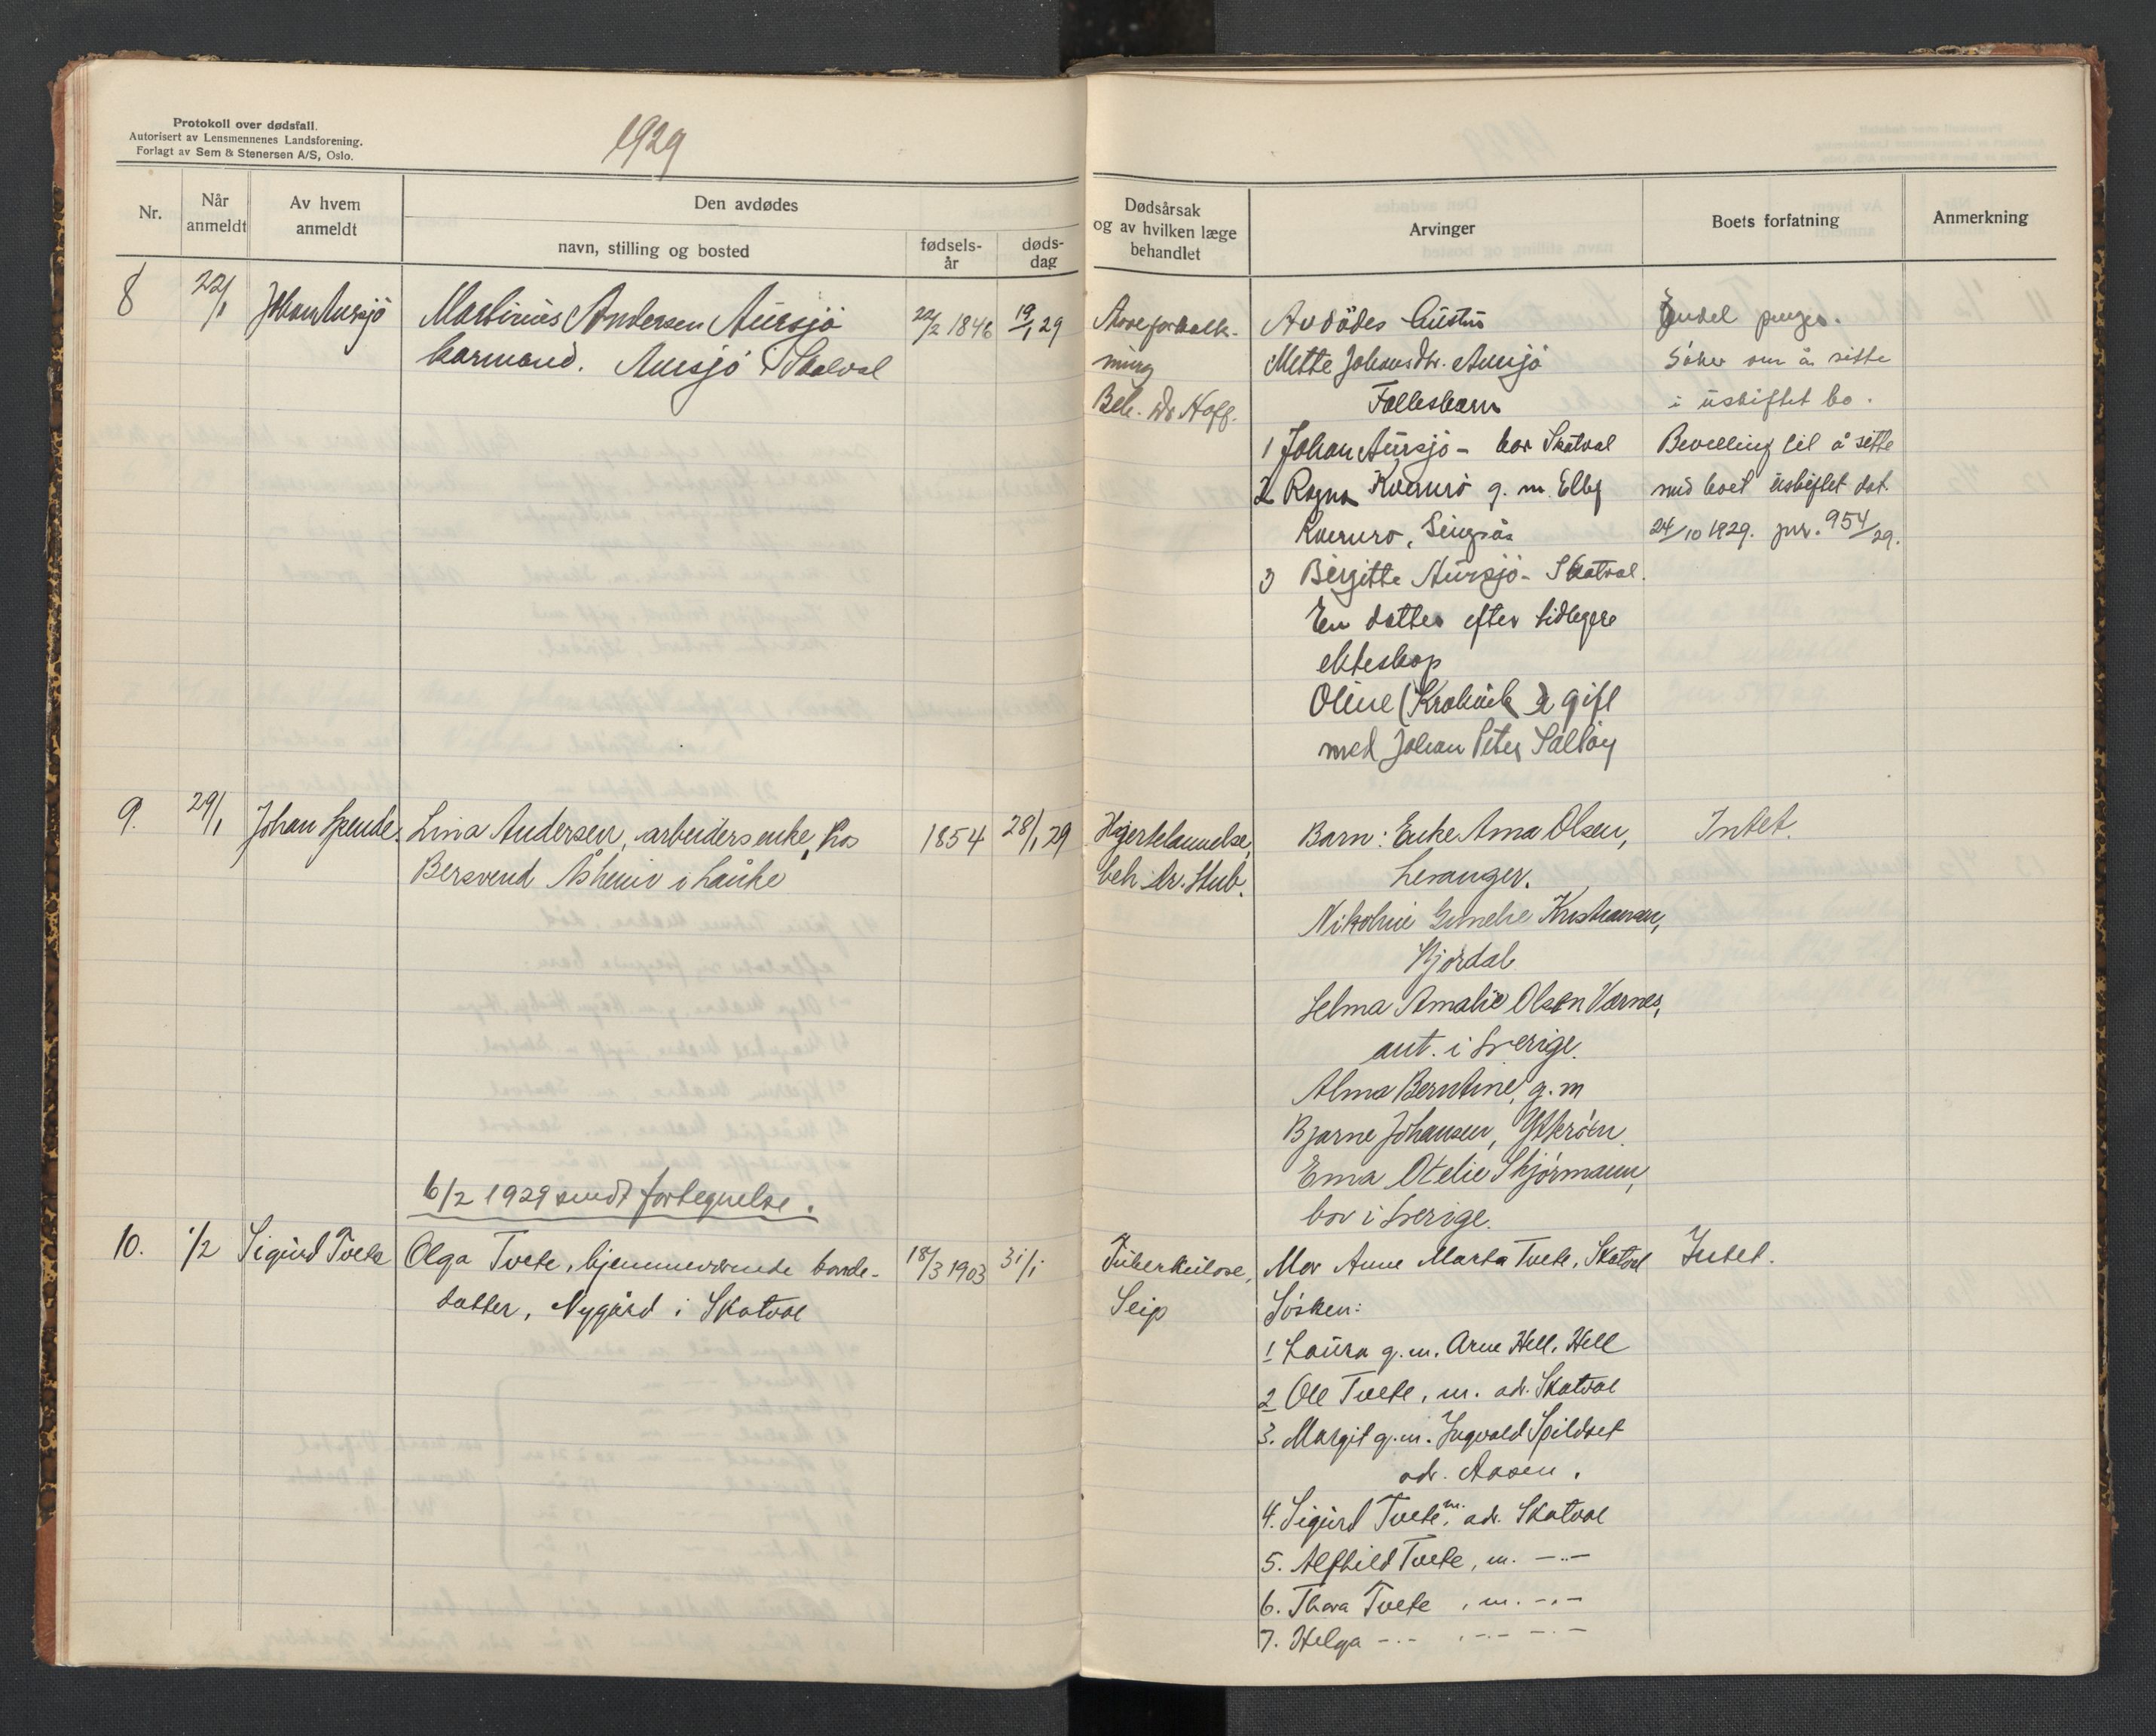 Protokoll over dødsfall.
Autorisert av Lensmennenes Landsforening.
Forlagt av Sem & Stenersen A/S, Oslo.
1929
Nr.
Når anmeldt
Av hvem anmeldt
Den avdødes
navn, stilling og bosted
fødsels-år
døds-dag
Dødsårsak og av hvilken læge behandlet
Arvinger
Boets forfatning
Anmerkning
8
22/1
Johan Aursjö
Martinius Andersen Aursjö
karmand. Aursjö i Skatval
22/2 1846
19/1 29
Aareforkalk-
ning
Beh. Dr Hoff.
Avdödes Hustru
Mette Johansdtr. Aursjö
Fællesbarn
1 Johan Aursjö - bor Skatval
2 Ragna Kvernrö g. m.
Kvernrö, Singsås
3 Birgitte Aursjö - Skatval.
En datter efter tidligere
ekteskap
Oline gift
med Johan Peter
Endel penger.
Söker om å sitte
i uskiftet bo.
Bevilling til å sitte
med boet uskiftet dat.
24/10 1929. jnr. 954/29.
9.
29/1
Johan
Lina Andersen, arbeiders enke, hos
Bersvend Åsheim i Lånke
1854
28/1 29
Hjertelammelse,
beh. dr. Stub.
Barn: Enke Anna Olsen,
Levanger.
Nikoline Kristiansen,
Stjørdal
Selma Amalie Olsen Værnes,
ant. i Sverige.
Alma Berntine, g. m
Bjarne Johansen, Ytterøen.
Emma Otelie Skjørmann,
bor i Sverige.
Intet.
6/2 1929 sendt fortegnelse.
10.
1/2
Sigurd Tvete
Olga Tvete, hjemmeværende bonde-
datter, Nygård i Skatval
18/3 1903
31/1
Tuberkulose,
Seip
Mor Anne Marta Tvete, Skatval
Søsken:
1 Laura g. m. Arne Hell, Hell
2 Ole Tvete, m. adr. Skatval
3. Margit g. m. Ingvald Spildset
adr. Aasen.
4. Sigurd Tvete, m. adr. Skatval
5. Alfhild Tvete, m. -"-
6. Thora Tvete, m. -"-
7. Helga -"- , -"- -"-
Intet.